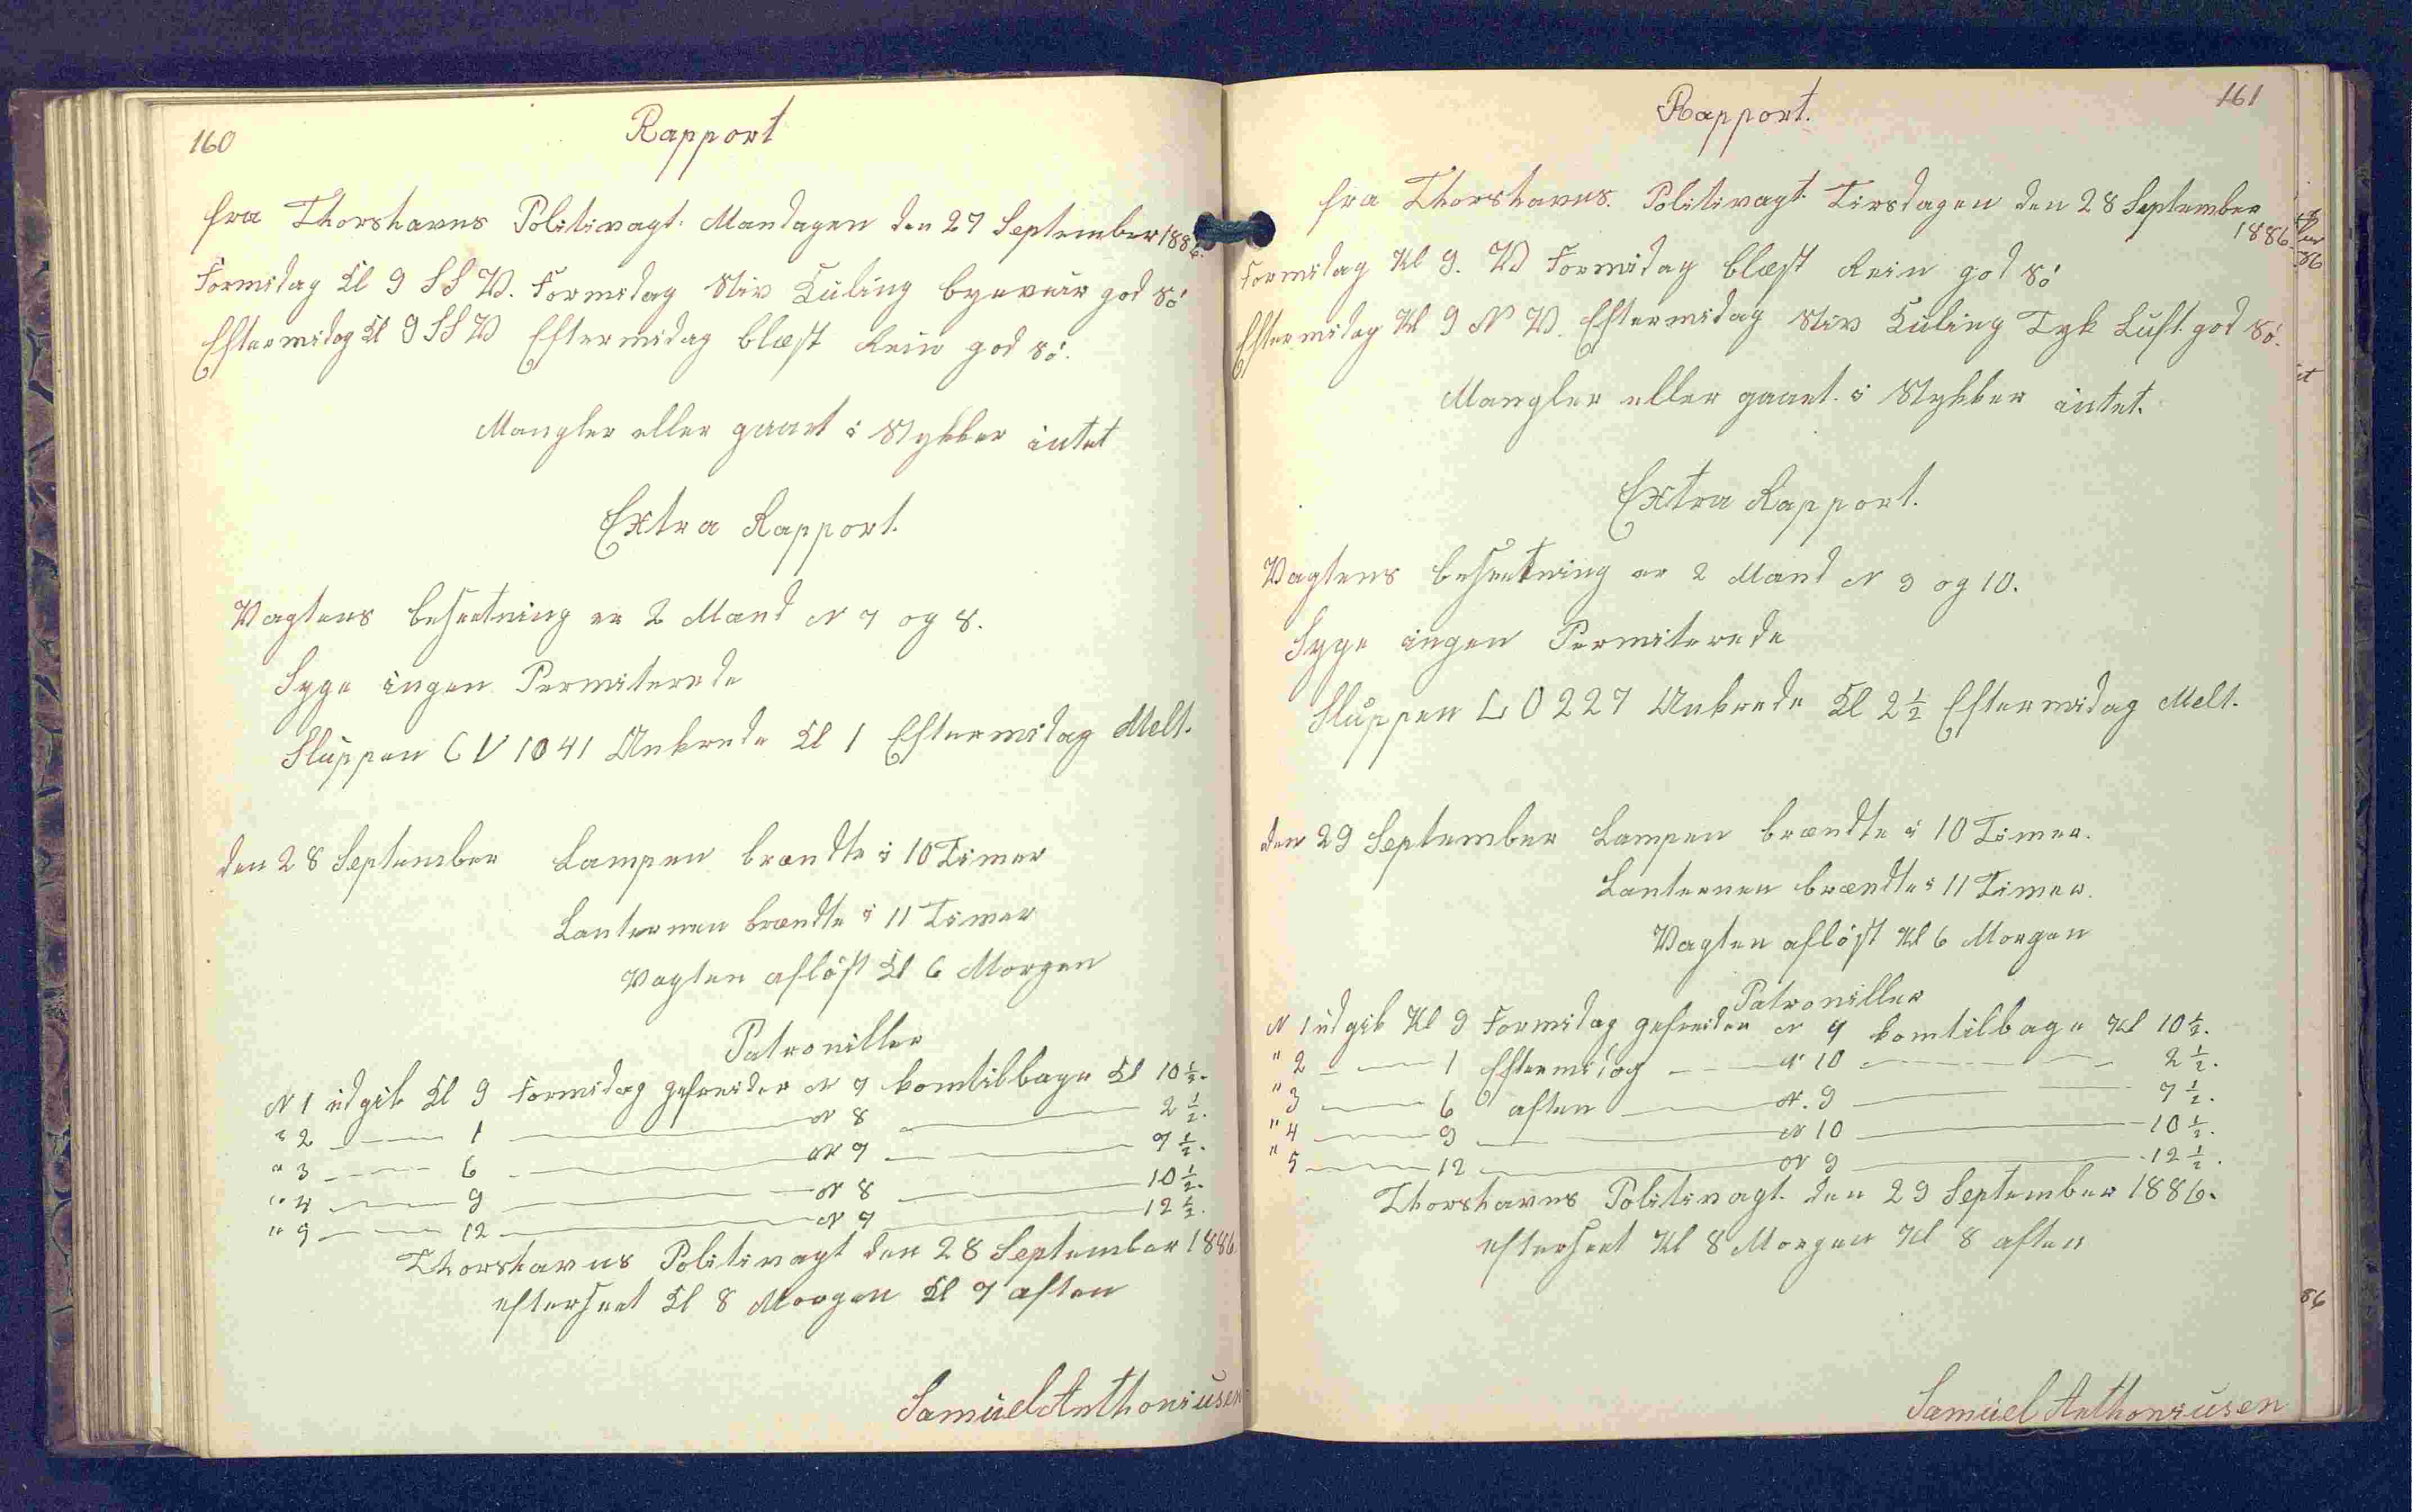 160
Rapport
fra Thorshavns Politivagt. Mandagen den 27 September 1886.
Formidag Kl 9 SSV. Formidag Stiv Kuling byeveir god Sö
Eftermidag Kl 9 SSV Eftermidag blæst Rein god Sö.
Mangler eller gaaet i Stykker intet
Extra Rapport.
Vagtens besætning er 2 Mand N 7 og 8.
Syge ingen Permiterede
Sluppen CV 1041 Ankrede Kl 1 Eftermidag Melt.
den 28 September Lampen brændte i 10 Timer
Lanternen brændte i 11 Timer
Vagten aflöst Kl 6 Morgen
Patroniller
N 1 udgik Kl 9 Formidag gefreider N 7 kom tilbage Kl 10 ½.
" 2 — 1 — N 8 — 2 ½.
" 3 — 6 — N 7 — 7 ½.
" 4 — 9 — N 8 — 10 ½.
" 5 — 12 — N 7 — 12 ½.
Thorshavns Politivagt den 28 September 1886
efterseet Kl 8 Morgen Kl 7 aften
Samuel Anthoniusen
161
Rapport.
fra Thorshavns. Politivagt. Tirsdagen den 28 September
1886.
Formidag Kl 9. V Formidag blæst Rein god Sö
Eftermidag Kl 9 NV. Eftermidag Stiv Kuling Tyk Luft. god Sö.
Mangler eller gaaet. i Stykker intet.
Extra Rapport.
Vagtens besætning er 2 Mand N 9 og 10.
Syge ingen Permiterede
Sluppen LO 227 Ankrede Kl 2 ½ Eftermidag Melt.
den 29 September Lampen brændte i 10 Timer.
Lanternen brændte i 11 Timer.
Vagten aflöst Kl 6 Morgen
Patroniller
N 1 udgik Kl 9 Formidag gefreider N 9 kom tilbage Kl 10 ½.
" 2 — 1 Eftermidag — N 10 — 2 ½.
" 3 — 6 aften — N. 9 — 7 ½.
" 4 — 9 — N 10 — 10 ½.
" 5 — 12 — N 9 — 12 ½.
Thorshavns Politivagt. den 29 September 1886.
efterseet Kl 8 Morgen Kl 8 aften
Samuel Anthoniusen